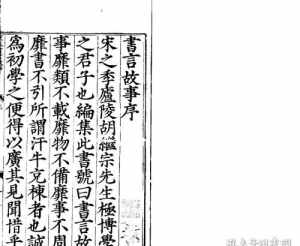 書言故事序
宋之季廬陵胡繼宗先生極博學
之君子也編集此書號曰書言故
事靡類不載靡物不備靡事不周
靡書不引所謂汗牛充棟者也誠
為初學之便得以廣其見聞惜乎